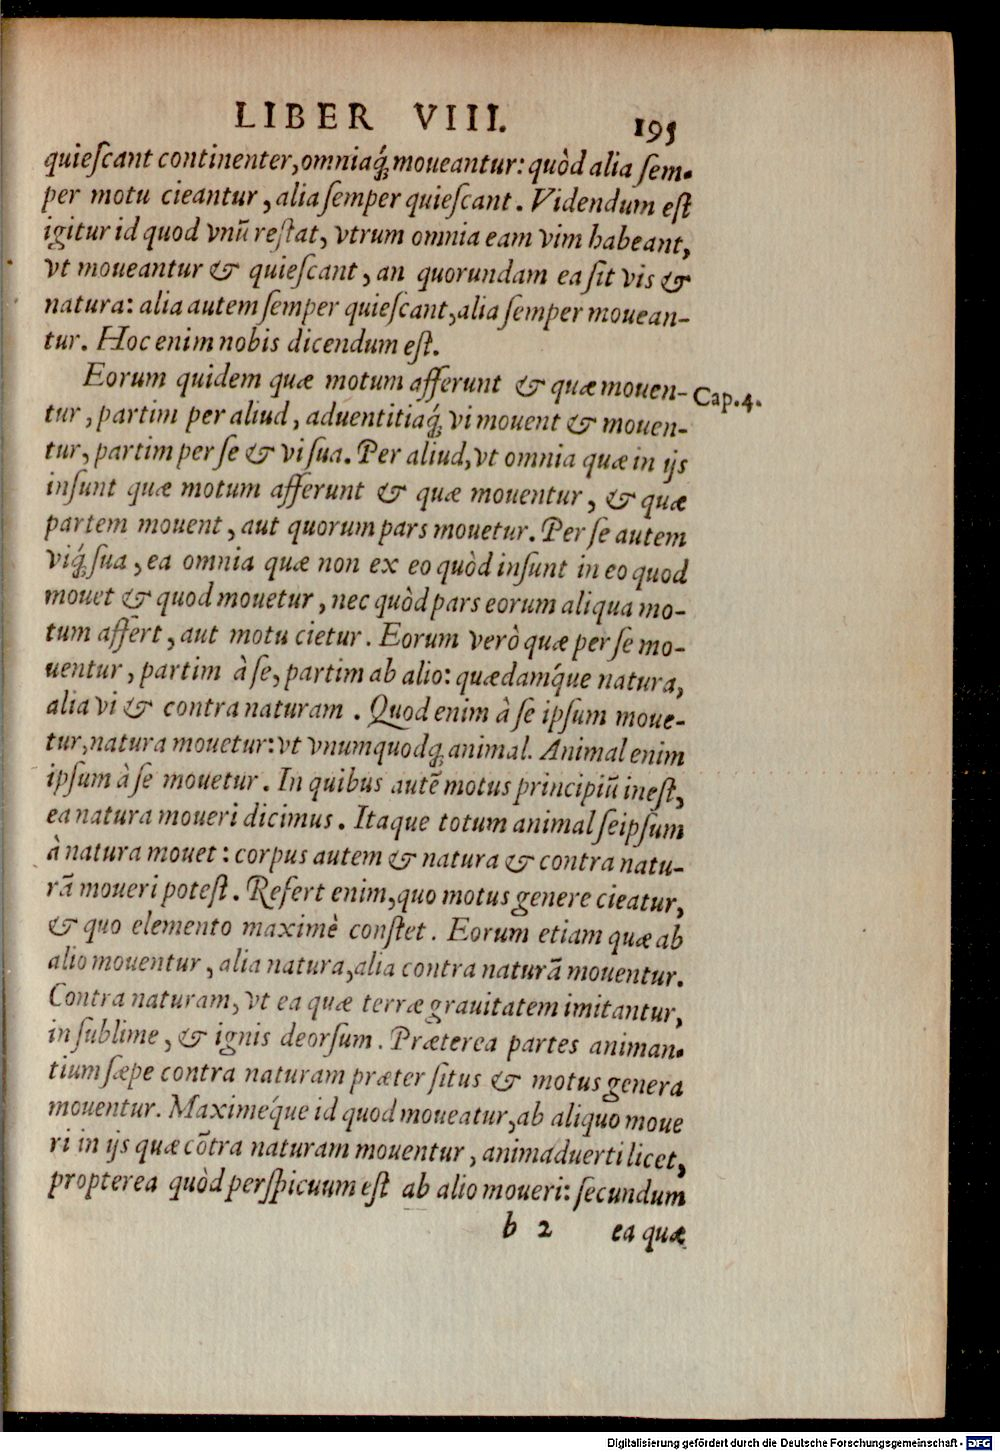 LIBER VIII. 195
quieſcant continenter, omniaq́; moueantur: quòd alia ſem-
per motu cieantur, alia ſemper quieſcant. Videndum eſt
igitur id quod vnũ reſtat, vtrum omnia eam vim habeant,
vt moueantur & quieſcant, an quorundam ea ſit vis &
natura: alia autem ſemper quieſcant, alia ſemper mouean-
tur. Hoc enim nobis dicendum eſt.
Eorum quidem quæ motum afferunt & quæ mouen- Cap. 4.
tur, partim per aliud, aduentitiaq́; vi mouent & mouen-
tur, partim per ſe & vi ſua. Per aliud, vt omnia quæ in ijs
inſunt quæ motum afferunt & quæ mouentur, & quæ
partem mouent, aut quorum pars mouetur. Per ſe autem
viq́; ſua, ea omnia quæ non ex eo quòd inſunt in eo quod
mouet & quod mouetur, nec quòd pars eorum aliqua mo-
tum affert, aut motu cietur. Eorum verò quæ per ſe mo-
uentur, partim à ſe, partim ab alio: quædamq́ue natura,
alia vi & contra naturam. Quod enim à ſe ipſum moue-
tur, natura mouetur: vt vnumquodq; animal. Animal enim
ipſum à ſe mouetur. In quibus autẽ motus principiũ ineſt,
ea natura moueri dicimus. Itaque totum animal ſeipſum
à natura mouet: corpus autem & natura & contra natu-
rã moueri poteſt. Refert enim, quo motus genere cieatur,
& quo elemento maximè conſtet. Eorum etiam quæ ab
alio mouentur, alia natura, alia contra naturã mouentur.
Contra naturam, vt ea quæ terræ grauitatem imitantur,
in ſublime, & ignis deorſum. Præterea partes animan-
tium ſæpe contra naturam præter ſitus & motus genera
mouentur. Maximeq́ue id quod moueatur, ab aliquo moue
ri in ijs quæ cõtra naturam mouentur, animaduerti licet,
propterea quòd perſpicuum eſt ab alio moueri: ſecundum
b 2 ea quæ
Digitalisierung gefördert durch die Deutsche Forschungsgemeinschaft - DFG